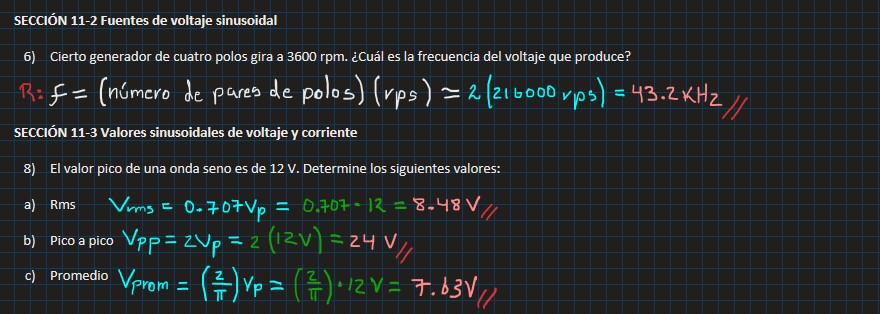 SECCIÓN 11-2 Fuentes de voltaje sinusoidal
6) Cierto generador de cuatro polos gira a 3600 rpm. ¿Cuál es la frecuencia del voltaje que produce?
R: f = (número de pares de polos) (rps) = 2 (216000 rps) = 43.2 KHz //
SECCIÓN 11-3 Valores sinusoidales de voltaje y corriente
8) El valor pico de una onda seno es de 12 V. Determine los siguientes valores:
a) Rms Vrms = 0.707Vp = 0.707 · 12 = 8.48 V //
b) Pico a pico Vpp = 2Vp = 2 (12V) = 24 V //
c) Promedio Vprom = (2/π) Vp = (2/π) · 12 V = 7.63V //